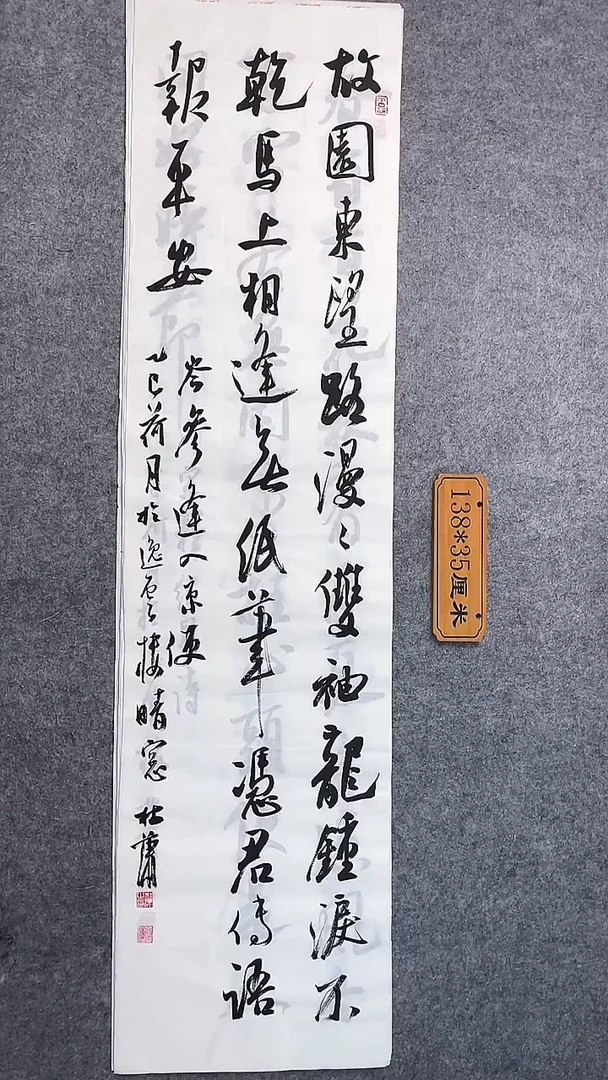 故園東望路漫々雙袖龍鍾淚不
乾馬上相逢無紙筆憑君傳語
報平安
岑參逢入京使
乙巳荷月於逸雲樓晴窓 杜蕭
138*35厘米